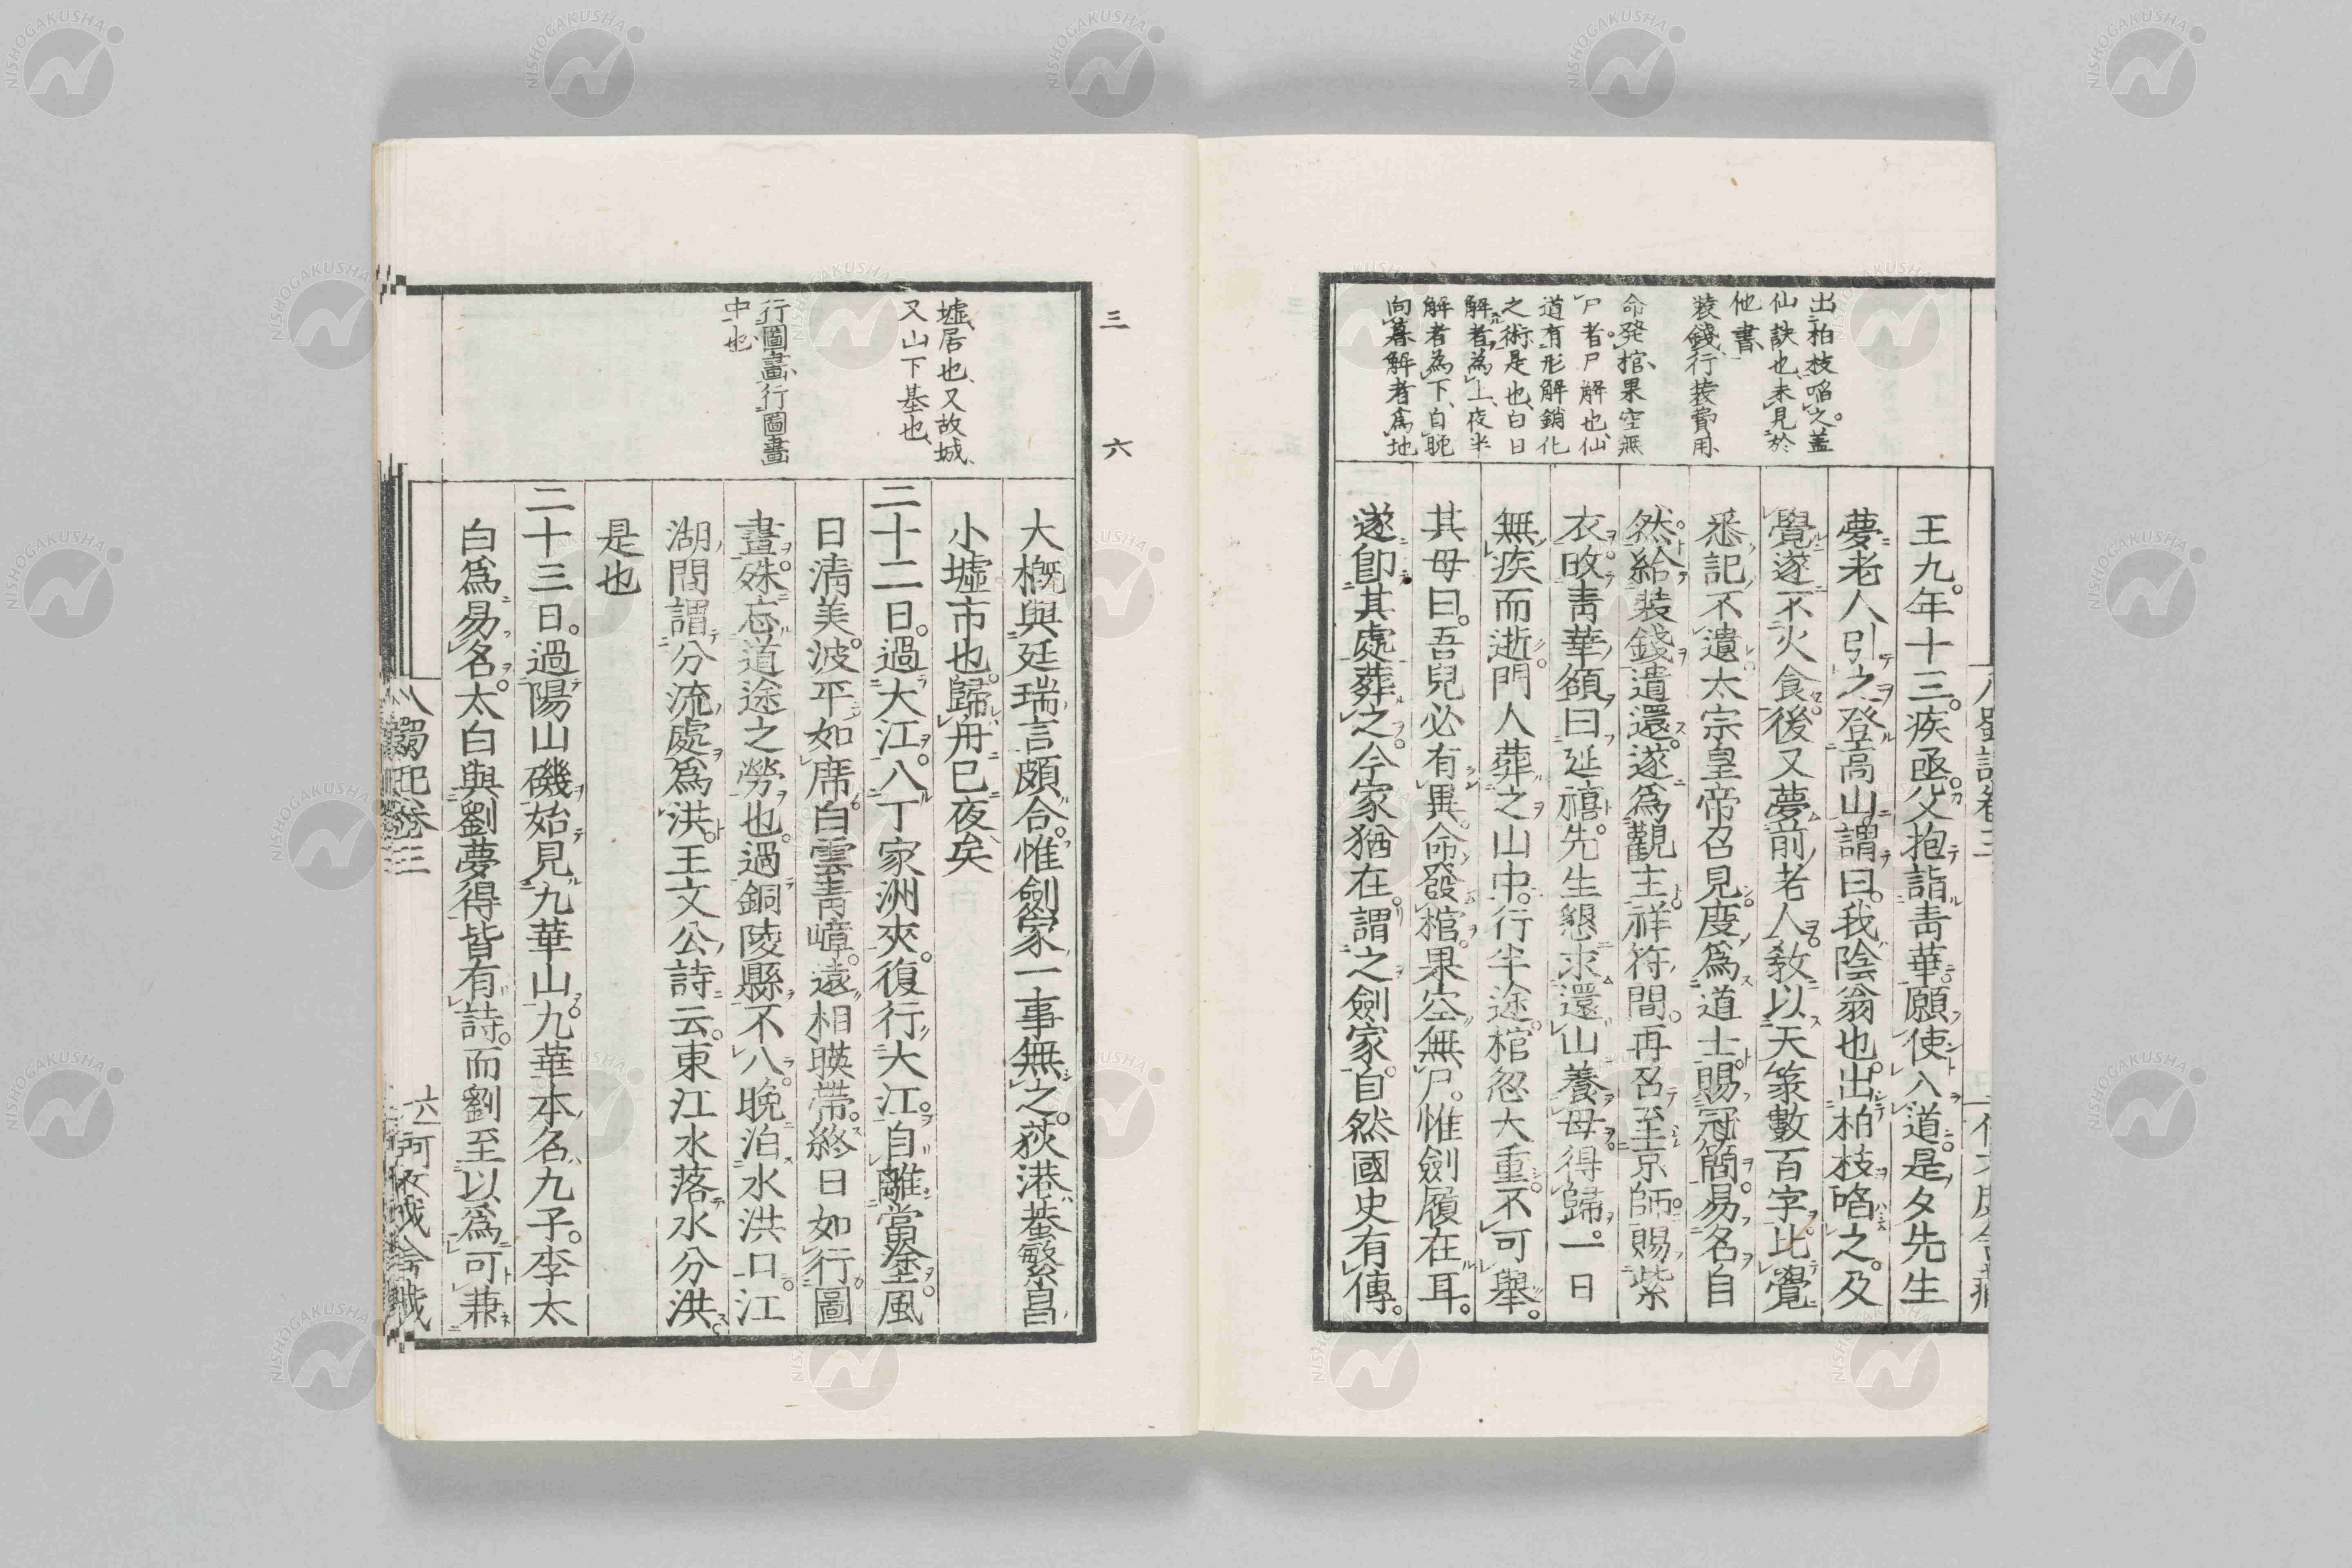 出柏枝啗之蓋
仙訣也未見於
他書
裝錢行裝費用
命發棺果空無
尸者尸解也仙
道有形解銷化
之術是也白日
解者為上夜半
解者為下自晩
向暮解者為地
王九年十三疾亟父抱詣青華願使入道是夕先生
夢老人引之登高山謂曰我陰翁也出柏枝啗之及
覺遂不火食後又夢前老人教以天篆數百字比覺
悉記不遺太宗皇帝召見度爲道士賜冠簡易名自
然給裝錢遣還遂爲觀主祥符間再召至京師賜紫
衣改青華額曰延禧先生懇求還山養母得歸一日
無疾而逝門人葬之山中行半途棺忽大重不可舉
其母曰吾兒必有異命發棺果空無尸惟劍履在耳
遂卽其處葬之今冢猶在謂之劍冢自然國史有傳
三 六
墟居也又故城
又山下基也
行圖畫行圖畫
中也
大概與廷瑞言頗合惟劍冢一事無之荻港蓋繁昌
小墟市也歸舟已夜矣
二十二日過大江入丁家洲夾復行大江自離當塗風
日淸美波平如席白雲青嶂遠相暎帶終日如行圖
畫殊忘道途之勞也過銅陵縣不入晚泊水洪口江
湖間謂分流處爲洪王文公詩云東江水落水分洪
是也
二十三日過陽山磯始見九華山九華本名九子李太
白爲易名太白與劉夢得皆有詩而劉至以爲可兼
入蜀記卷三
六